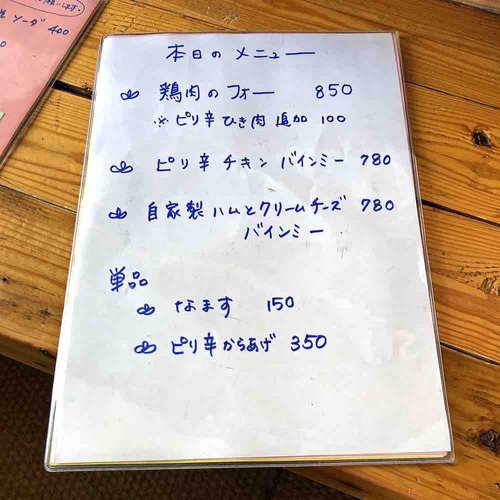 本日のメニュー
鶏肉のフォー 850
※ピリ辛ひき肉追加 100
ピリ辛チキンバインミー 780
自家製ハムとクリームチーズ 780
バインミー
単品
なます 150
ピリ辛からあげ 350
ソーダ 400